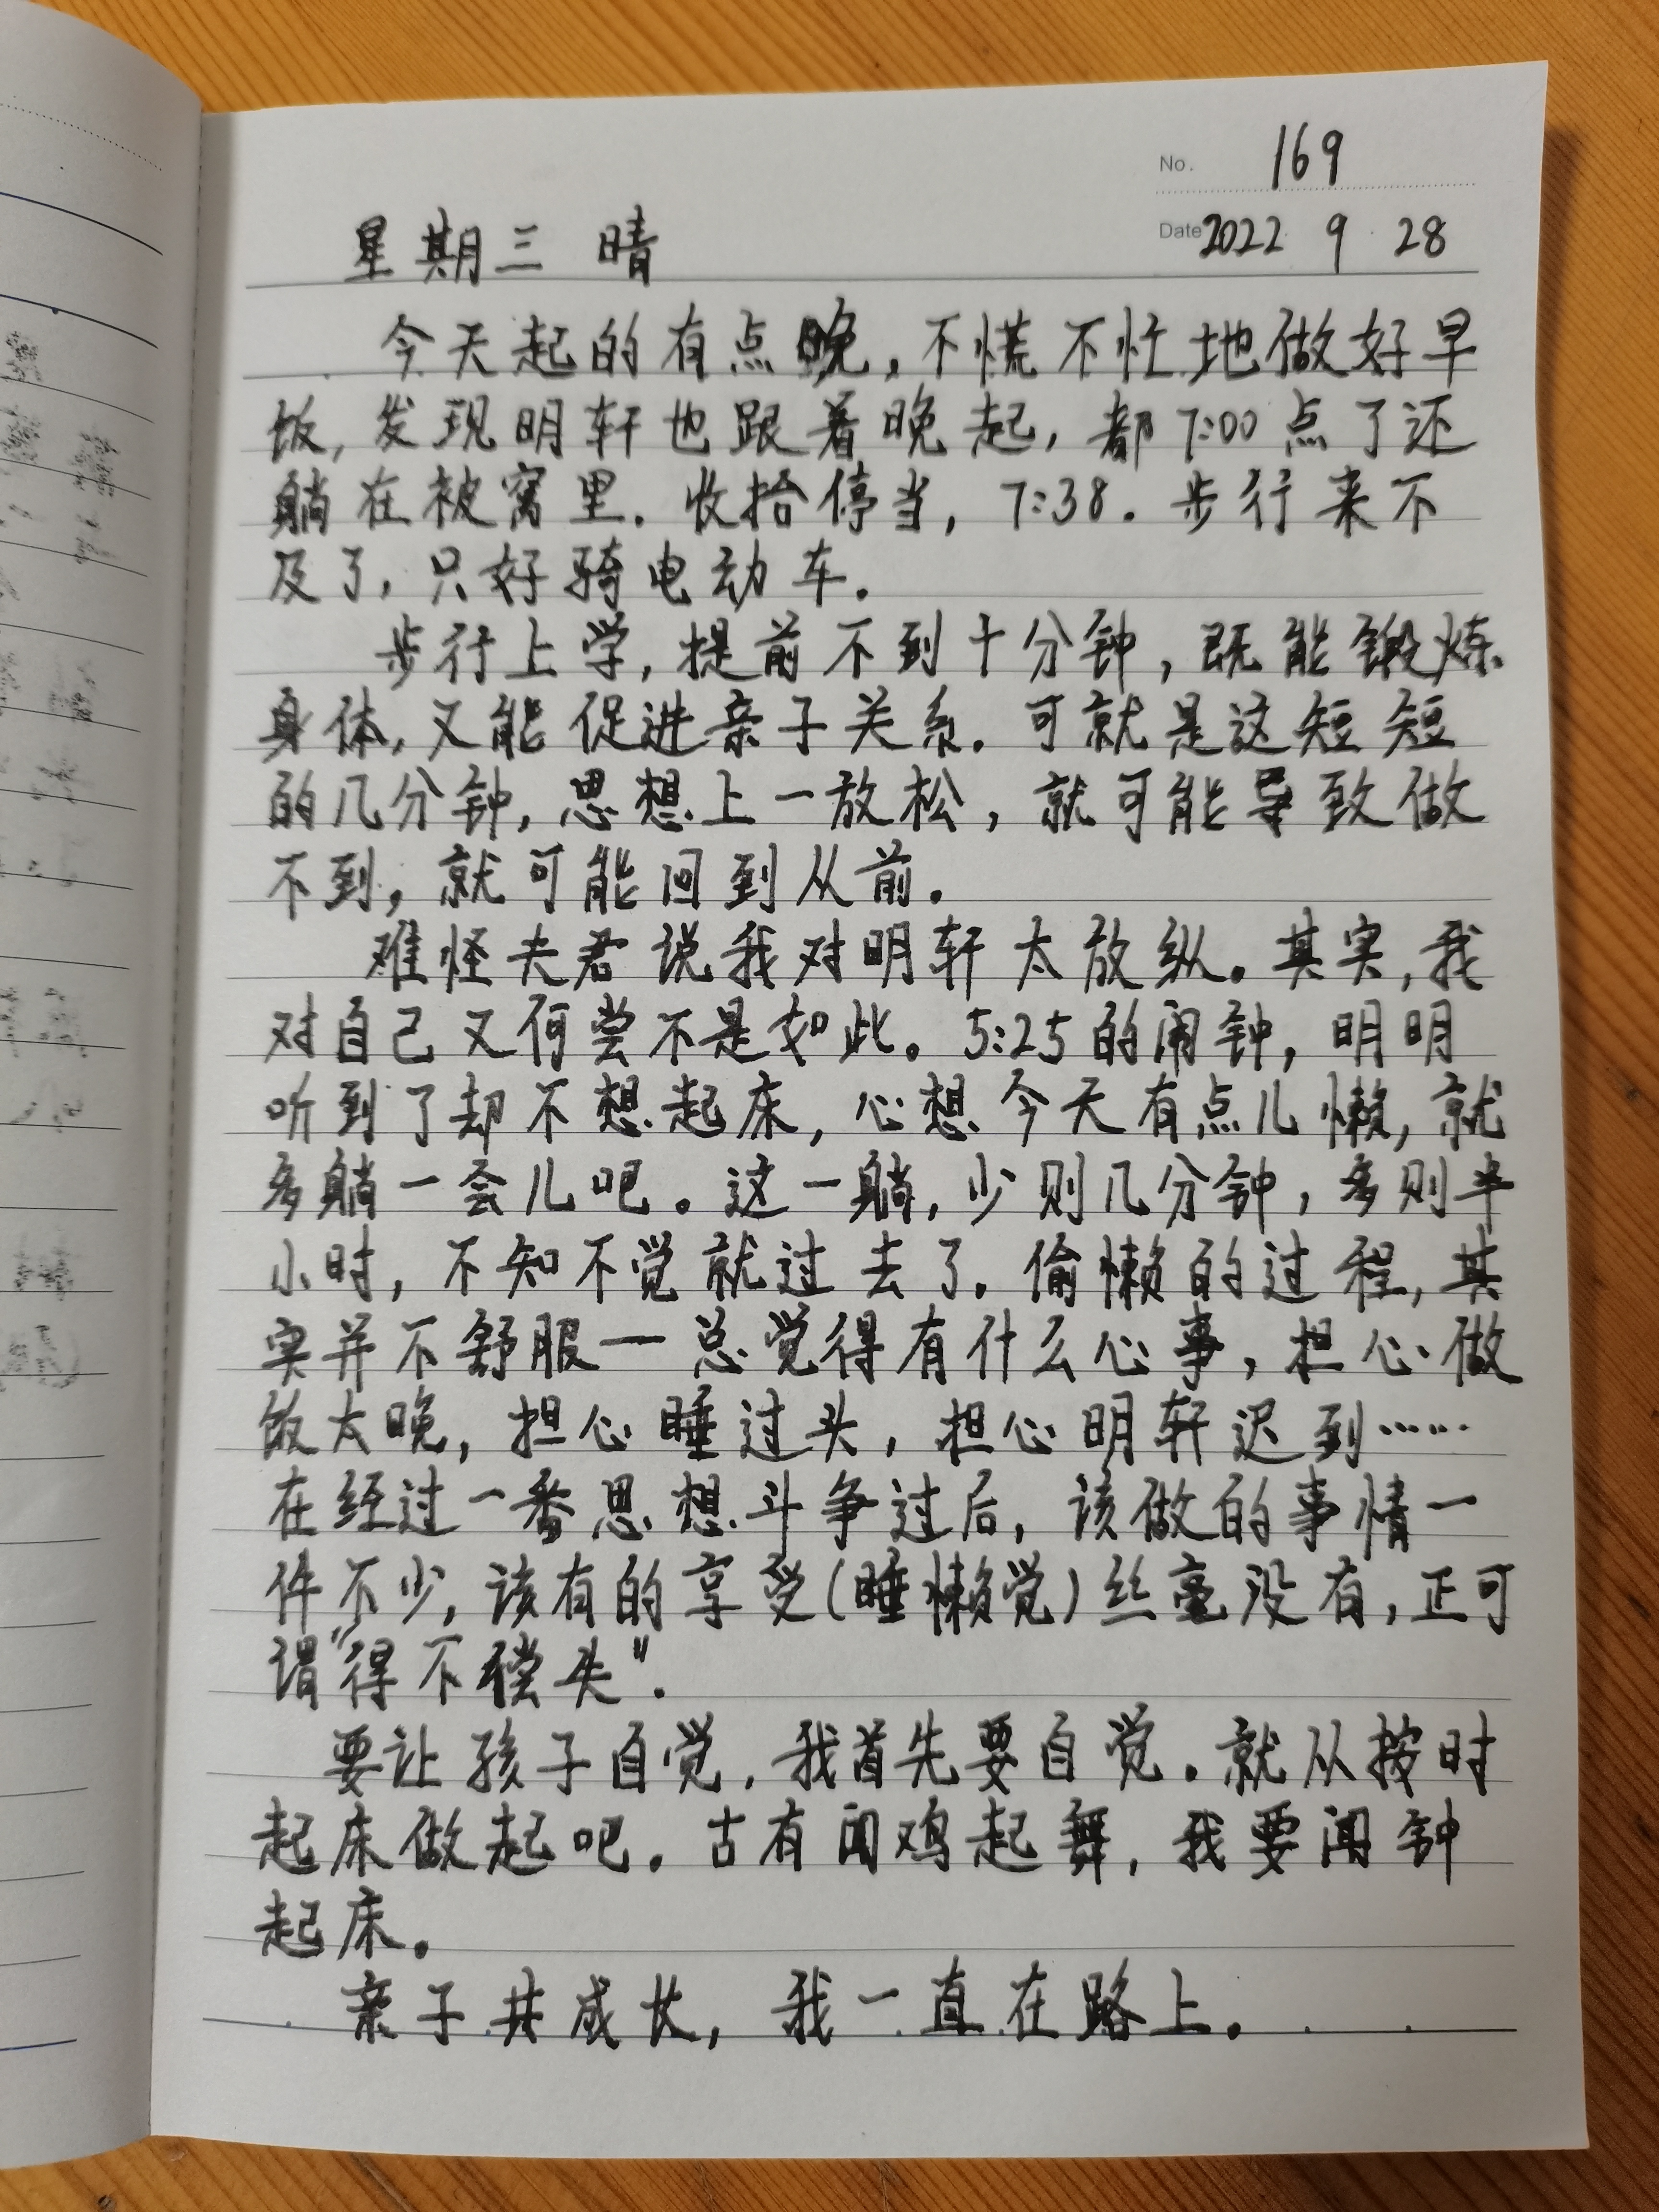 No. 169
Date 2022 9 28
星期三 晴
今天起的有点晚,不慌不忙地做好早
饭,发现明轩也跟着晚起,都7:00点了还
躺在被窝里.收拾停当,7:38.步行来不
及了,只好骑电动车.
步行上学,提前不到十分钟,既能锻炼
身体,又能促进亲子关系.可就是这短短
的几分钟,思想上一放松,就可能导致做
不到,就可能回到从前.
难怪夫君说我对明轩太放纵。其实,我
对自己又何尝不是如此。5:25的闹钟,明明
听到了却不想起床,心想今天有点儿懒,就
多躺一会儿吧。这一躺,少则几分钟,多则半
小时,不知不觉就过去了.偷懒的过程,其
实并不舒服一总觉得有什么心事,担心做
饭太晚,担心睡过头,担心明轩迟到……
在经过一番思想斗争过后,该做的事情一
件不少,该有的享受(睡懒觉)丝毫没有,正可
谓"得不偿失".
要让孩子自觉,我首先要自觉.就从按时
起床做起吧.古有闻鸡起舞,我要闻钟
起床。
亲子共成长,我一直在路上.